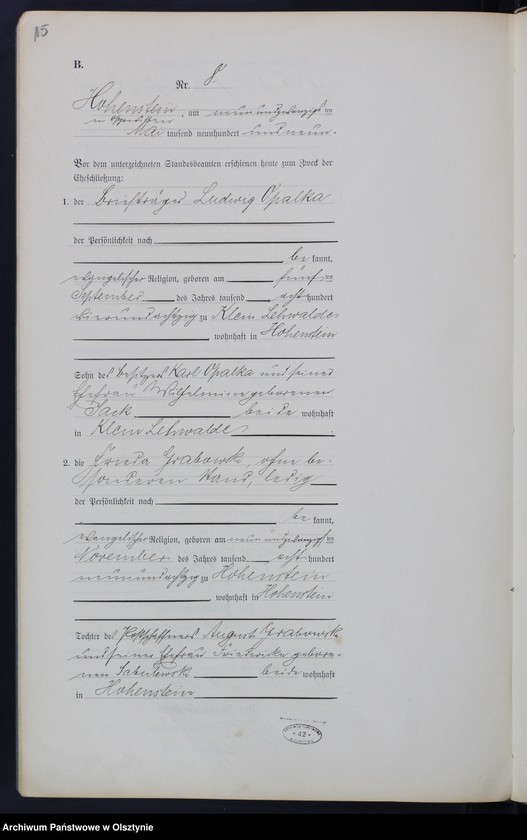 15
B.
Nr. 8.
Hohenstein, am neunundzwanzigsten
in Ostpreußen
Mai tausend neunhundert und neun.
Vor dem unterzeichneten Standesbeamten erschienen heute zum Zweck der
Eheschließung:
1. der Briefträger Ludwig Opalka
der Persönlichkeit nach
be kannt,
evangelischer Religion, geboren am fünften
September des Jahres tausend acht hundert
vierundachtzig zu Klein Lehwalde
, wohnhaft in Hohenstein
Sohn des Besitzers Karl Opalka und seiner
Ehefrau Wilhelmine geborenen
beide wohnhaft
in Klein Lehwalde.
2. die Frieda Grabowski, ohne be-
sonderen Stand, ledig
der Persönlichkeit nach
be kannt,
evangelischer Religion, geboren am neunundzwanzigsten
November des Jahres tausend acht hundert
neunundachtzig zu Hohenstein
, wohnhaft in Hohenstein
Tochter des Postschaffners August Grabowski
und seiner Ehefrau Friederike gebore-
nen beide wohnhaft
in Hohenstein
42
Archiwum Państwowe w Olsztynie